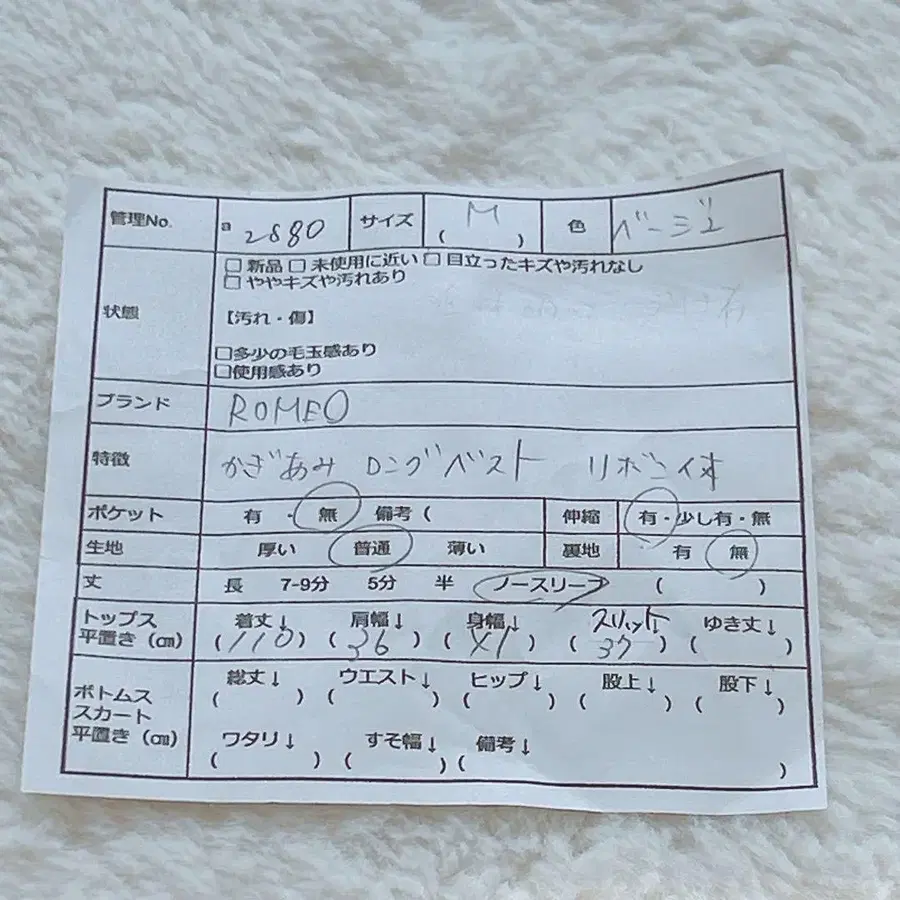 管理No. a 2880 サイズ M ( ) 色 ベージュ
状態 □ 新品 □ 未使用に近い □ 目立ったキズや汚れなし
□ やや キズや汚れあり
【汚れ・傷】
□多少の毛玉感あり
□使用感あり
ブランド ROMEO
特徴 かぎあみ ロングベスト リボン付
ポケット 有 ・ 無 備考 ( 伸縮 有・少し有・無
生地 厚い 普通 薄い 裏地 有 無
丈 長 7-9分 5分 半 ノースリーブ ( )
トップス 着丈↓ 肩幅↓ 身幅↓ スリット↓ ゆき丈↓
平置き (㎝) (110) (36) (41) (37) ( )
ボトムス 総丈↓ ウエスト↓ ヒップ↓ 股上↓ 股下↓
スカート ( ) ( ) ( ) ( ) ( )
平置き (㎝) ワタリ↓ すそ幅↓ 備考↓
( ) ( ) ( )